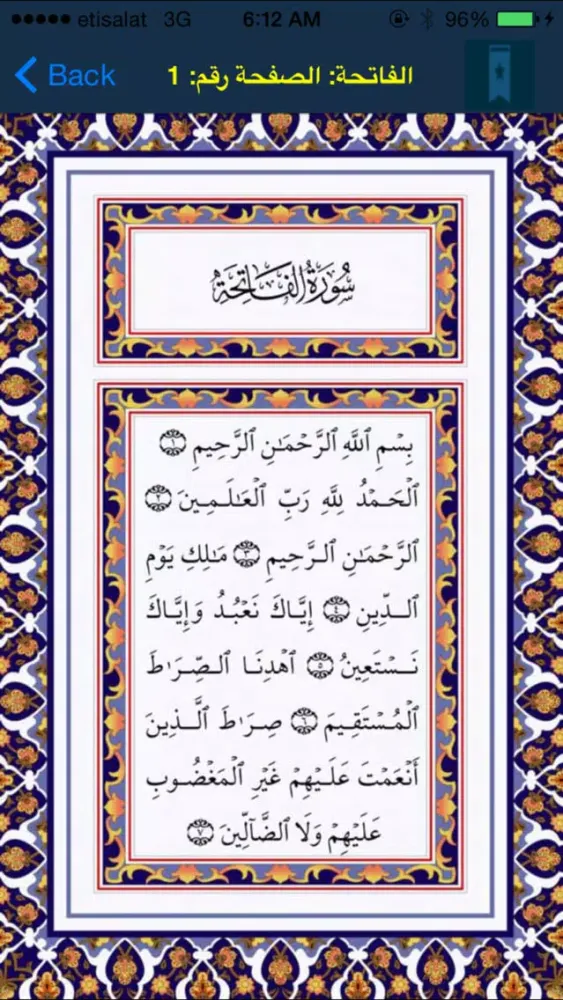 etisalat 3G 6:12 AM 96%
Back الفاتحة: الصفحة رقم: 1
سُورَةُ الفَاتِحَةِ
بِسْمِ ٱللَّهِ ٱلرَّحْمَٰنِ ٱلرَّحِيمِ ١
ٱلْحَمْدُ لِلَّهِ رَبِّ ٱلْعَٰلَمِينَ ٢
ٱلرَّحْمَٰنِ ٱلرَّحِيمِ ٣ مَٰلِكِ يَوْمِ
ٱلدِّينِ ٤ إِيَّاكَ نَعْبُدُ وَإِيَّاكَ
نَسْتَعِينُ ٥ ٱهْدِنَا ٱلصِّرَٰطَ
ٱلْمُسْتَقِيمَ ٦ صِرَٰطَ ٱلَّذِينَ
أَنْعَمْتَ عَلَيْهِمْ غَيْرِ ٱلْمَغْضُوبِ
عَلَيْهِمْ وَلَا ٱلضَّآلِّينَ ٧